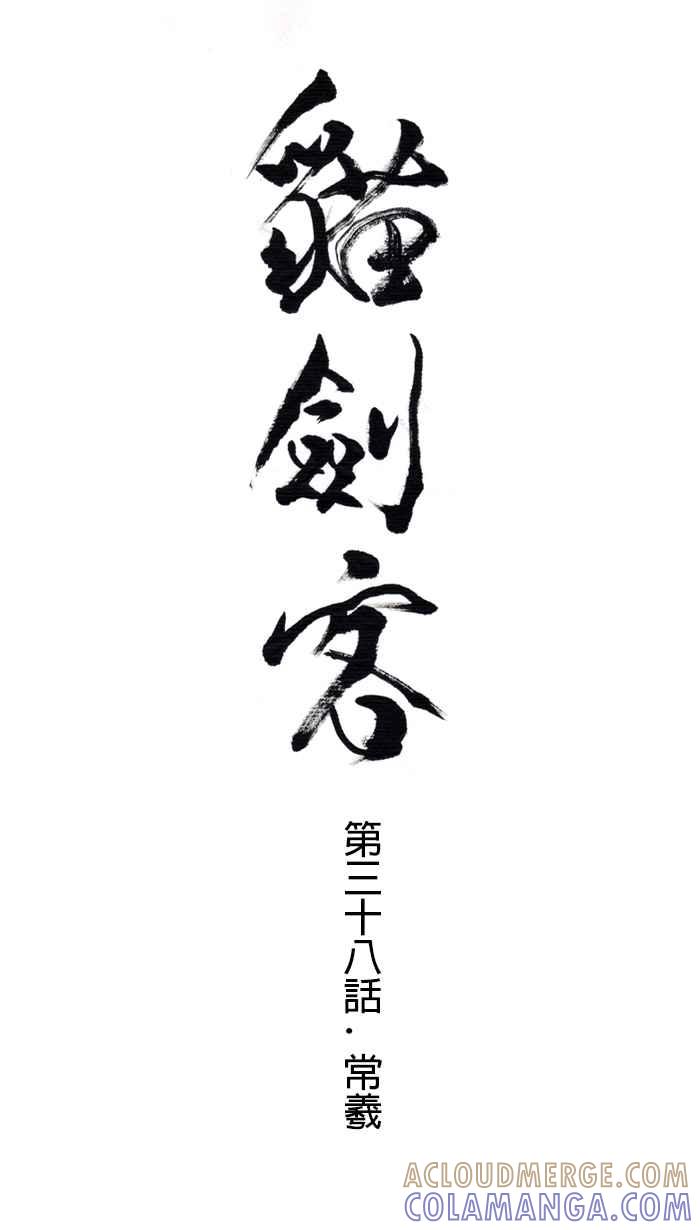 貓劍客
第三十八話．常羲
ACLOUDMERGE.COM
COLAMANGA.COM